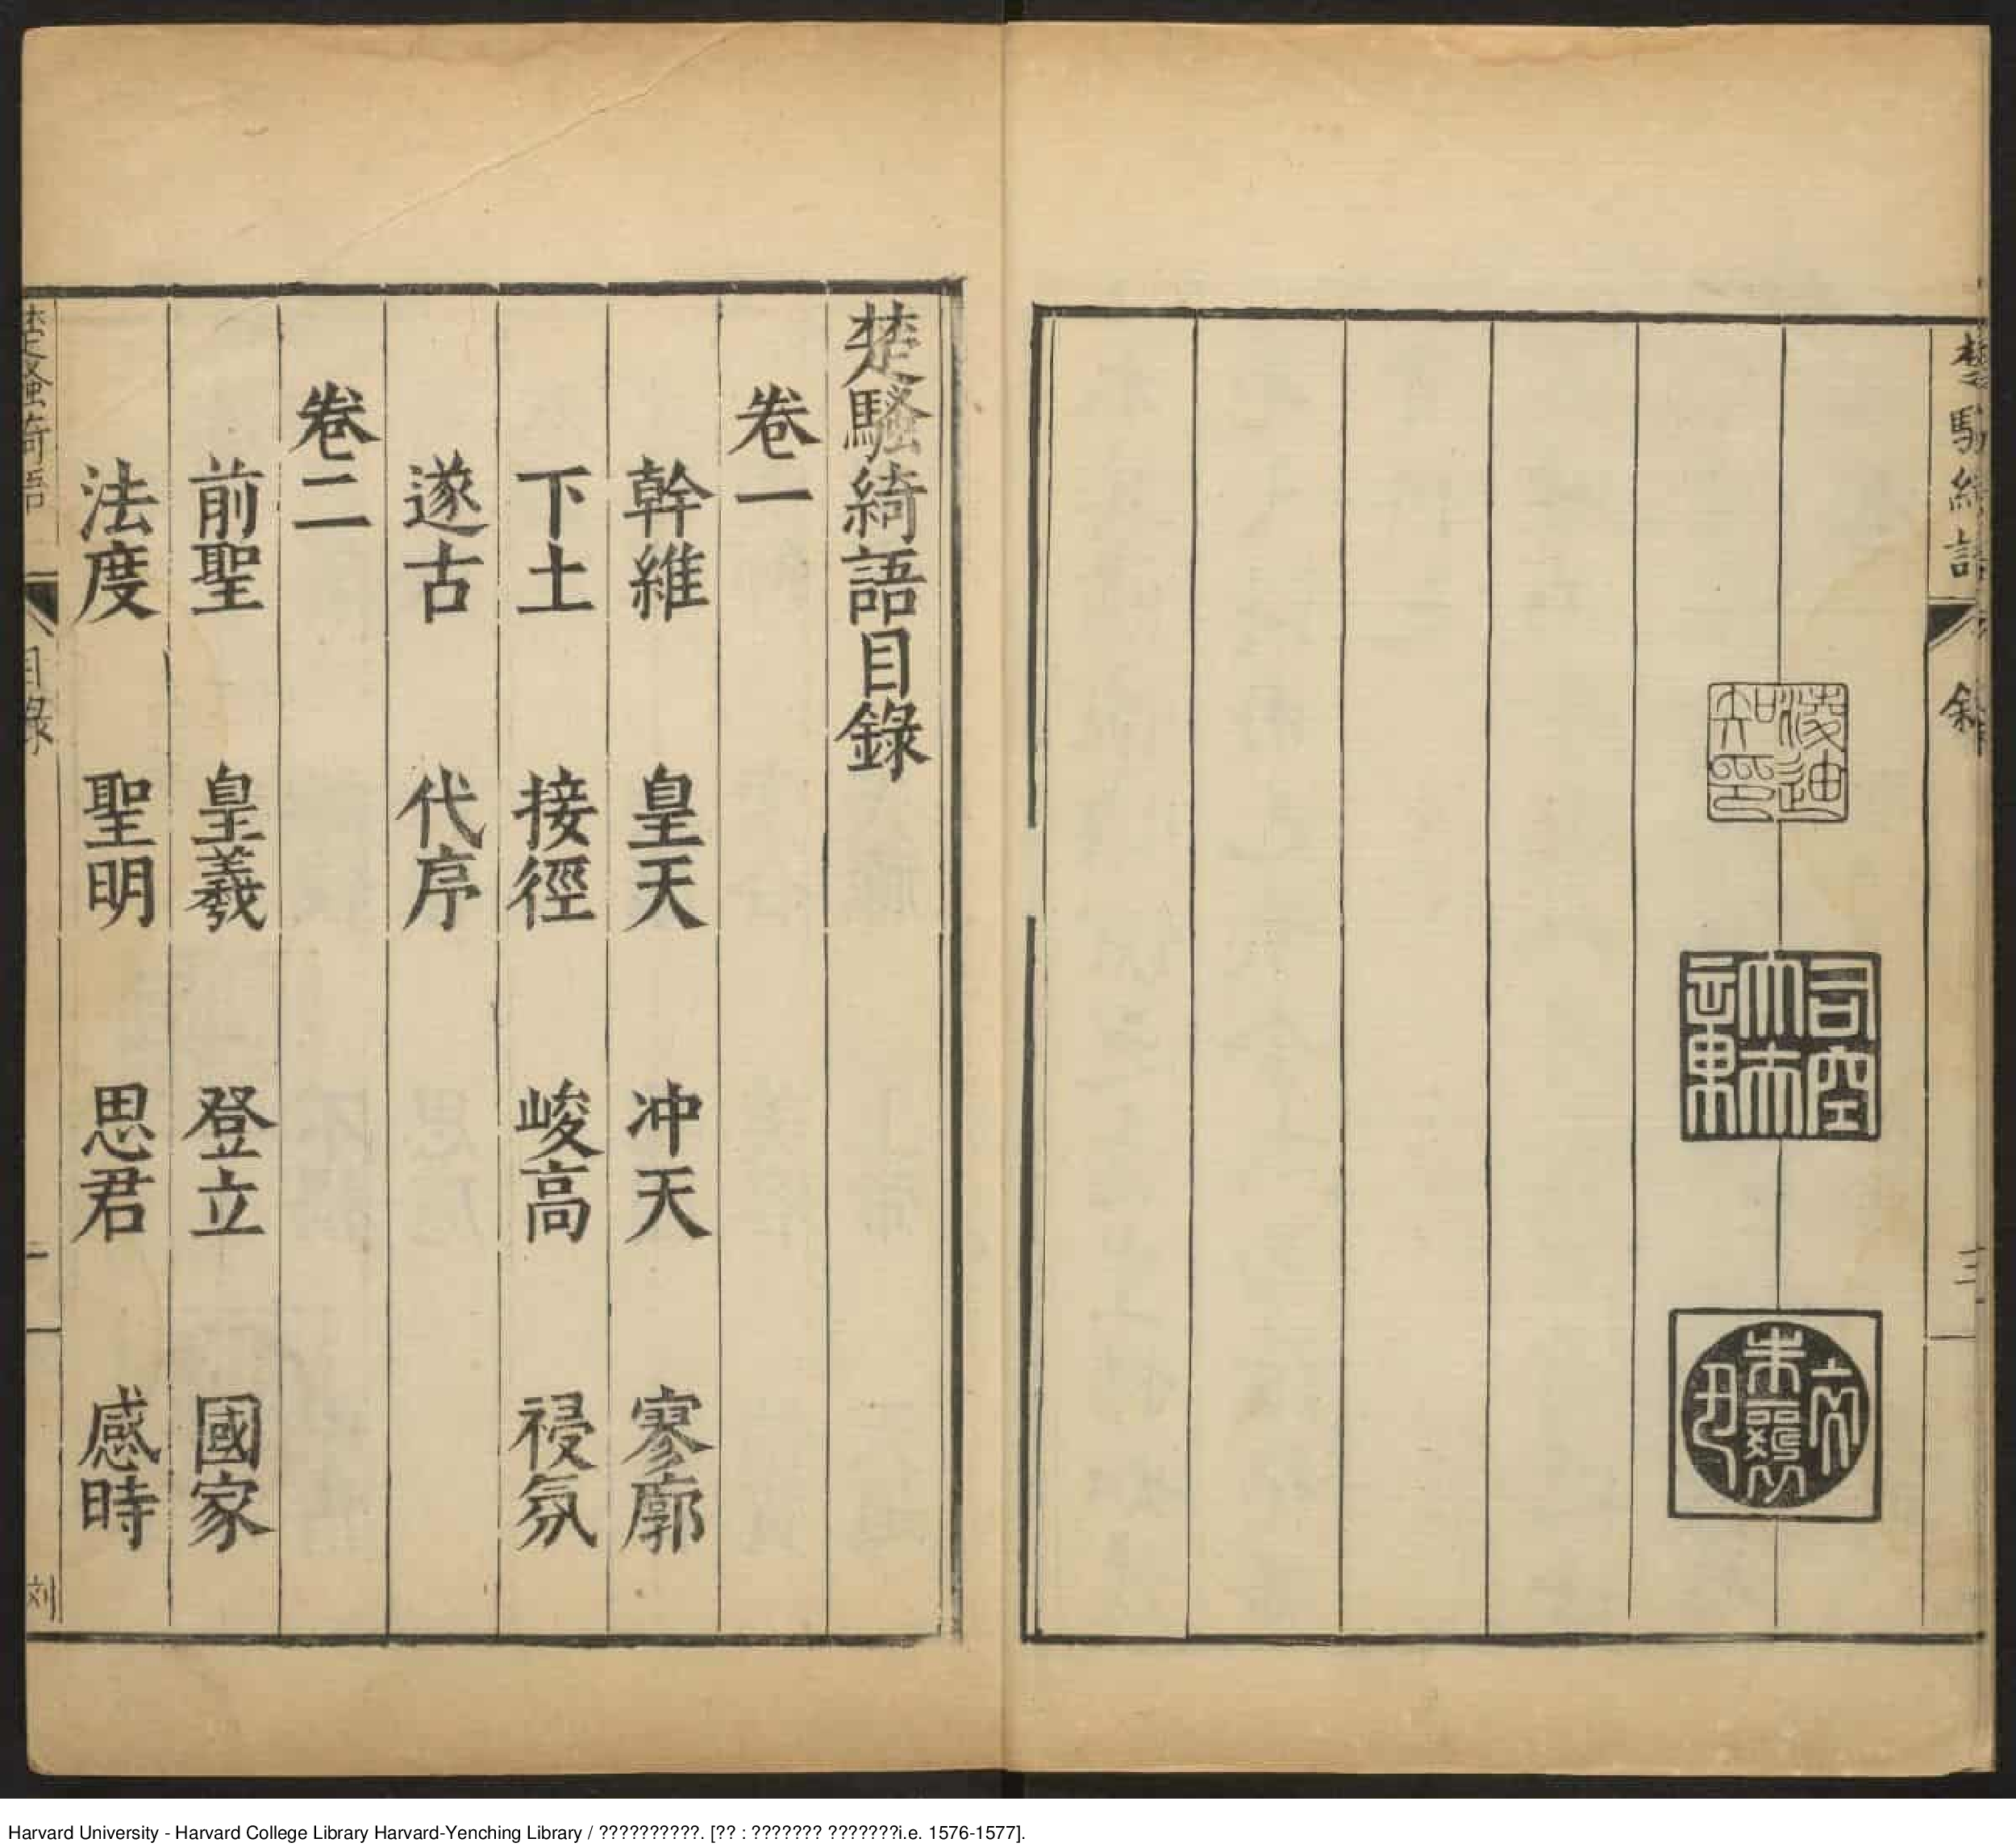 楚騷綺語 叙
三
凌迪知印
司空大夫
楚騷綺語目錄
卷一
幹維 皇天 冲天 寥廓
下土 接徑 峻高 祲氛
遂古 代序
卷二
前聖 皇羲 登立 國家
法度 聖明 思君 感時
楚騷綺語 目錄
一
刘
Harvard University - Harvard College Library Harvard-Yenching Library / ??????????. [?? : ??????? ???????i.e. 1576-1577].